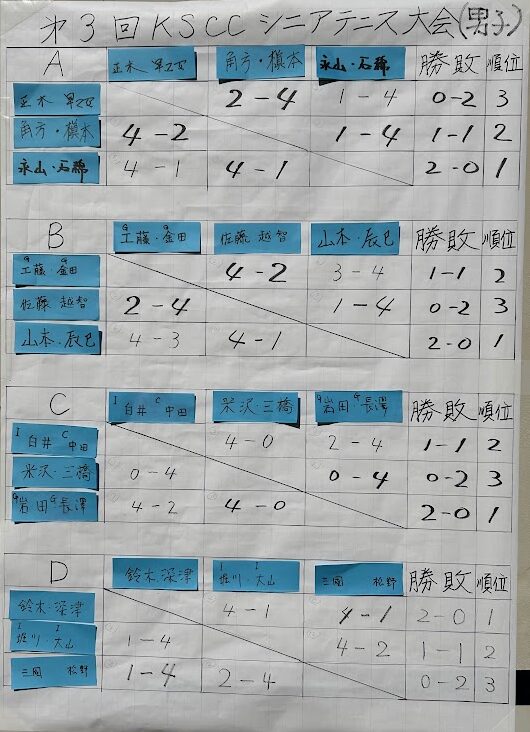 第3回KSCCシニアテニス大会(男子)
A 並木 早乙女 角方・槇本 永山・石綿 勝敗 順位
並木 早乙女 2-4 1-4 0-2 3
角方・槇本 4-2 1-4 1-1 2
永山・石綿 4-1 4-1 2-0 1
B 工藤・金田 佐藤 越智 山本・辰巳 勝敗 順位
工藤・金田 4-2 3-4 1-1 2
佐藤 越智 2-4 1-4 0-2 3
山本・辰巳 4-3 4-1 2-0 1
C I 白井 C 中田 米沢・三橋 岩田 長澤 勝敗 順位
I 白井 C 中田 4-0 2-4 1-1 2
米沢・三橋 0-4 0-4 0-2 3
岩田 長澤 4-2 4-0 2-0 1
D 鈴木・深津 I 堀川・I 大山 三國 松野 勝敗 順位
鈴木・深津 4-1 4-1 2-0 1
I 堀川・I 大山 1-4 4-2 1-1 2
三國 松野 1-4 2-4 0-2 3